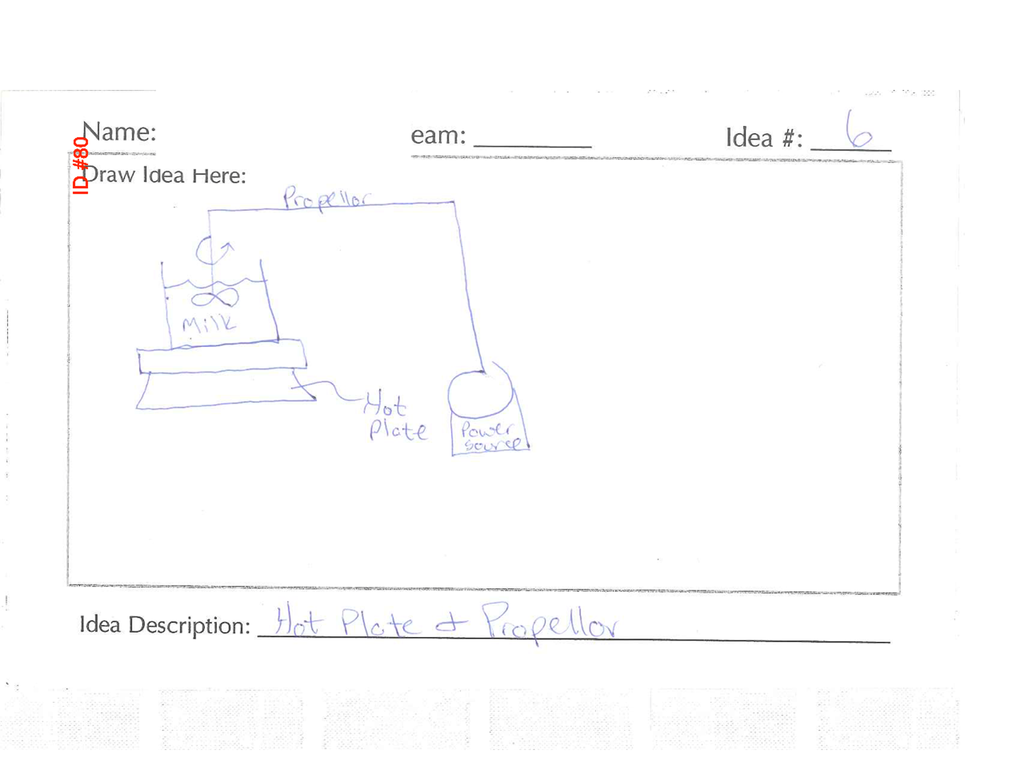 Name:
eam:
Idea #: 6
ID #80
Draw Idea Here:
Propellor
Milk
Hot
Plate
Power
source
Idea Description: Hot Plate & Propellor